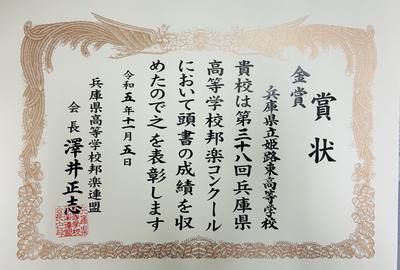 賞状
金賞
兵庫県立姫路東高等学校
貴校は第三十八回兵庫県
高等学校邦楽コンクール
において頭書の成績を収
めたので之を表彰します
令和五年十一月五日
兵庫県高等学校邦楽連盟
会長 澤井正志